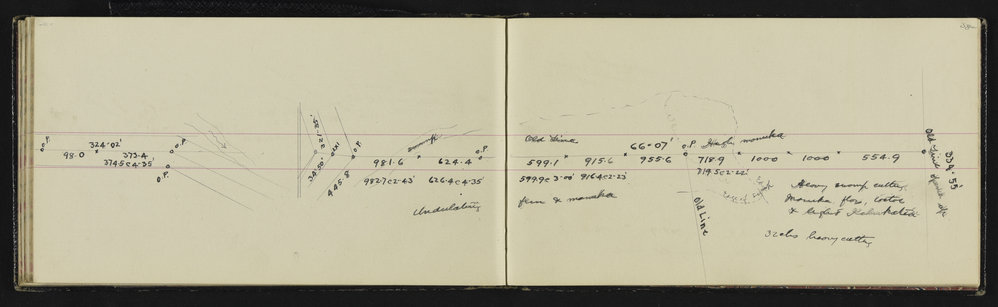 o.P.
324·02'
98·0 373·4
374·5 @ 4·35'
o.P.
o.P.
34·50'
445·8
o.P.
981·6 624·4
982·7 @ 2·43' 626·4 @ 4·35'
Undulating
Old Line
66·07'
o.P. High manuka
599·1 915·6 955·6 718·9 1000 1000 554·9
599·9 @ 3·00' 916·4 @ 2·23' 719·5 @ 2·22'
fern & manuka
Old Line
Heavy swamp cutting,
Manuka flax,
& light Kahikatea
32 chs heavy cutting
Old Line
334·55'